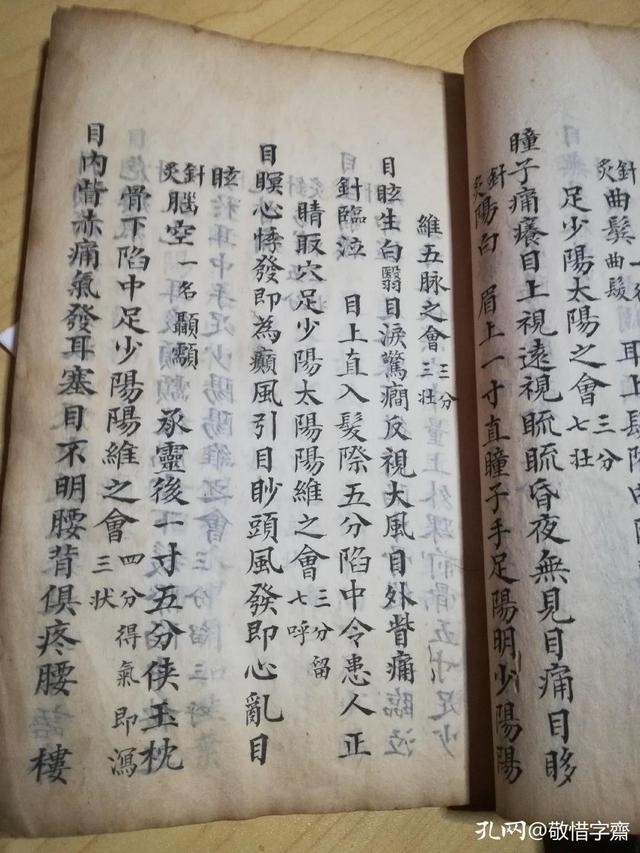 針灸曲鬢曲髮 耳上髮際中
足少陽太陽之會三分七壯
瞳子痛癢目上視遠視䀮䀮昏夜無見目痛目眵
針灸陽向 眉上一寸直瞳子手足陽明少陽陽
維五脈之會三分三壯
目眩生白翳目淚驚癎反視大風目外眥痛臨泣
針臨泣 目上直入髮際五分陷中令患人正
睛取穴足少陽太陽陽維之會三分留七呼
目瞑心悸發即為癲風引目眇頭風發即心亂目
眩
針灸腦空一名顳顬 承靈後一寸五分俠玉枕
骨下陷中足少陽陽維之會四分得氣即瀉三状
目內眥赤痛氣發耳塞目不明腰背俱疼腰樓
孔网@敬惜字斋